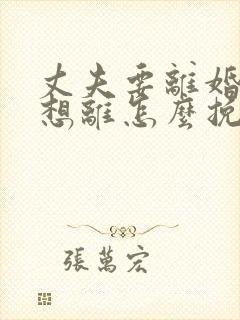 丈夫要離婚
想離怎麼挽
張萬宏